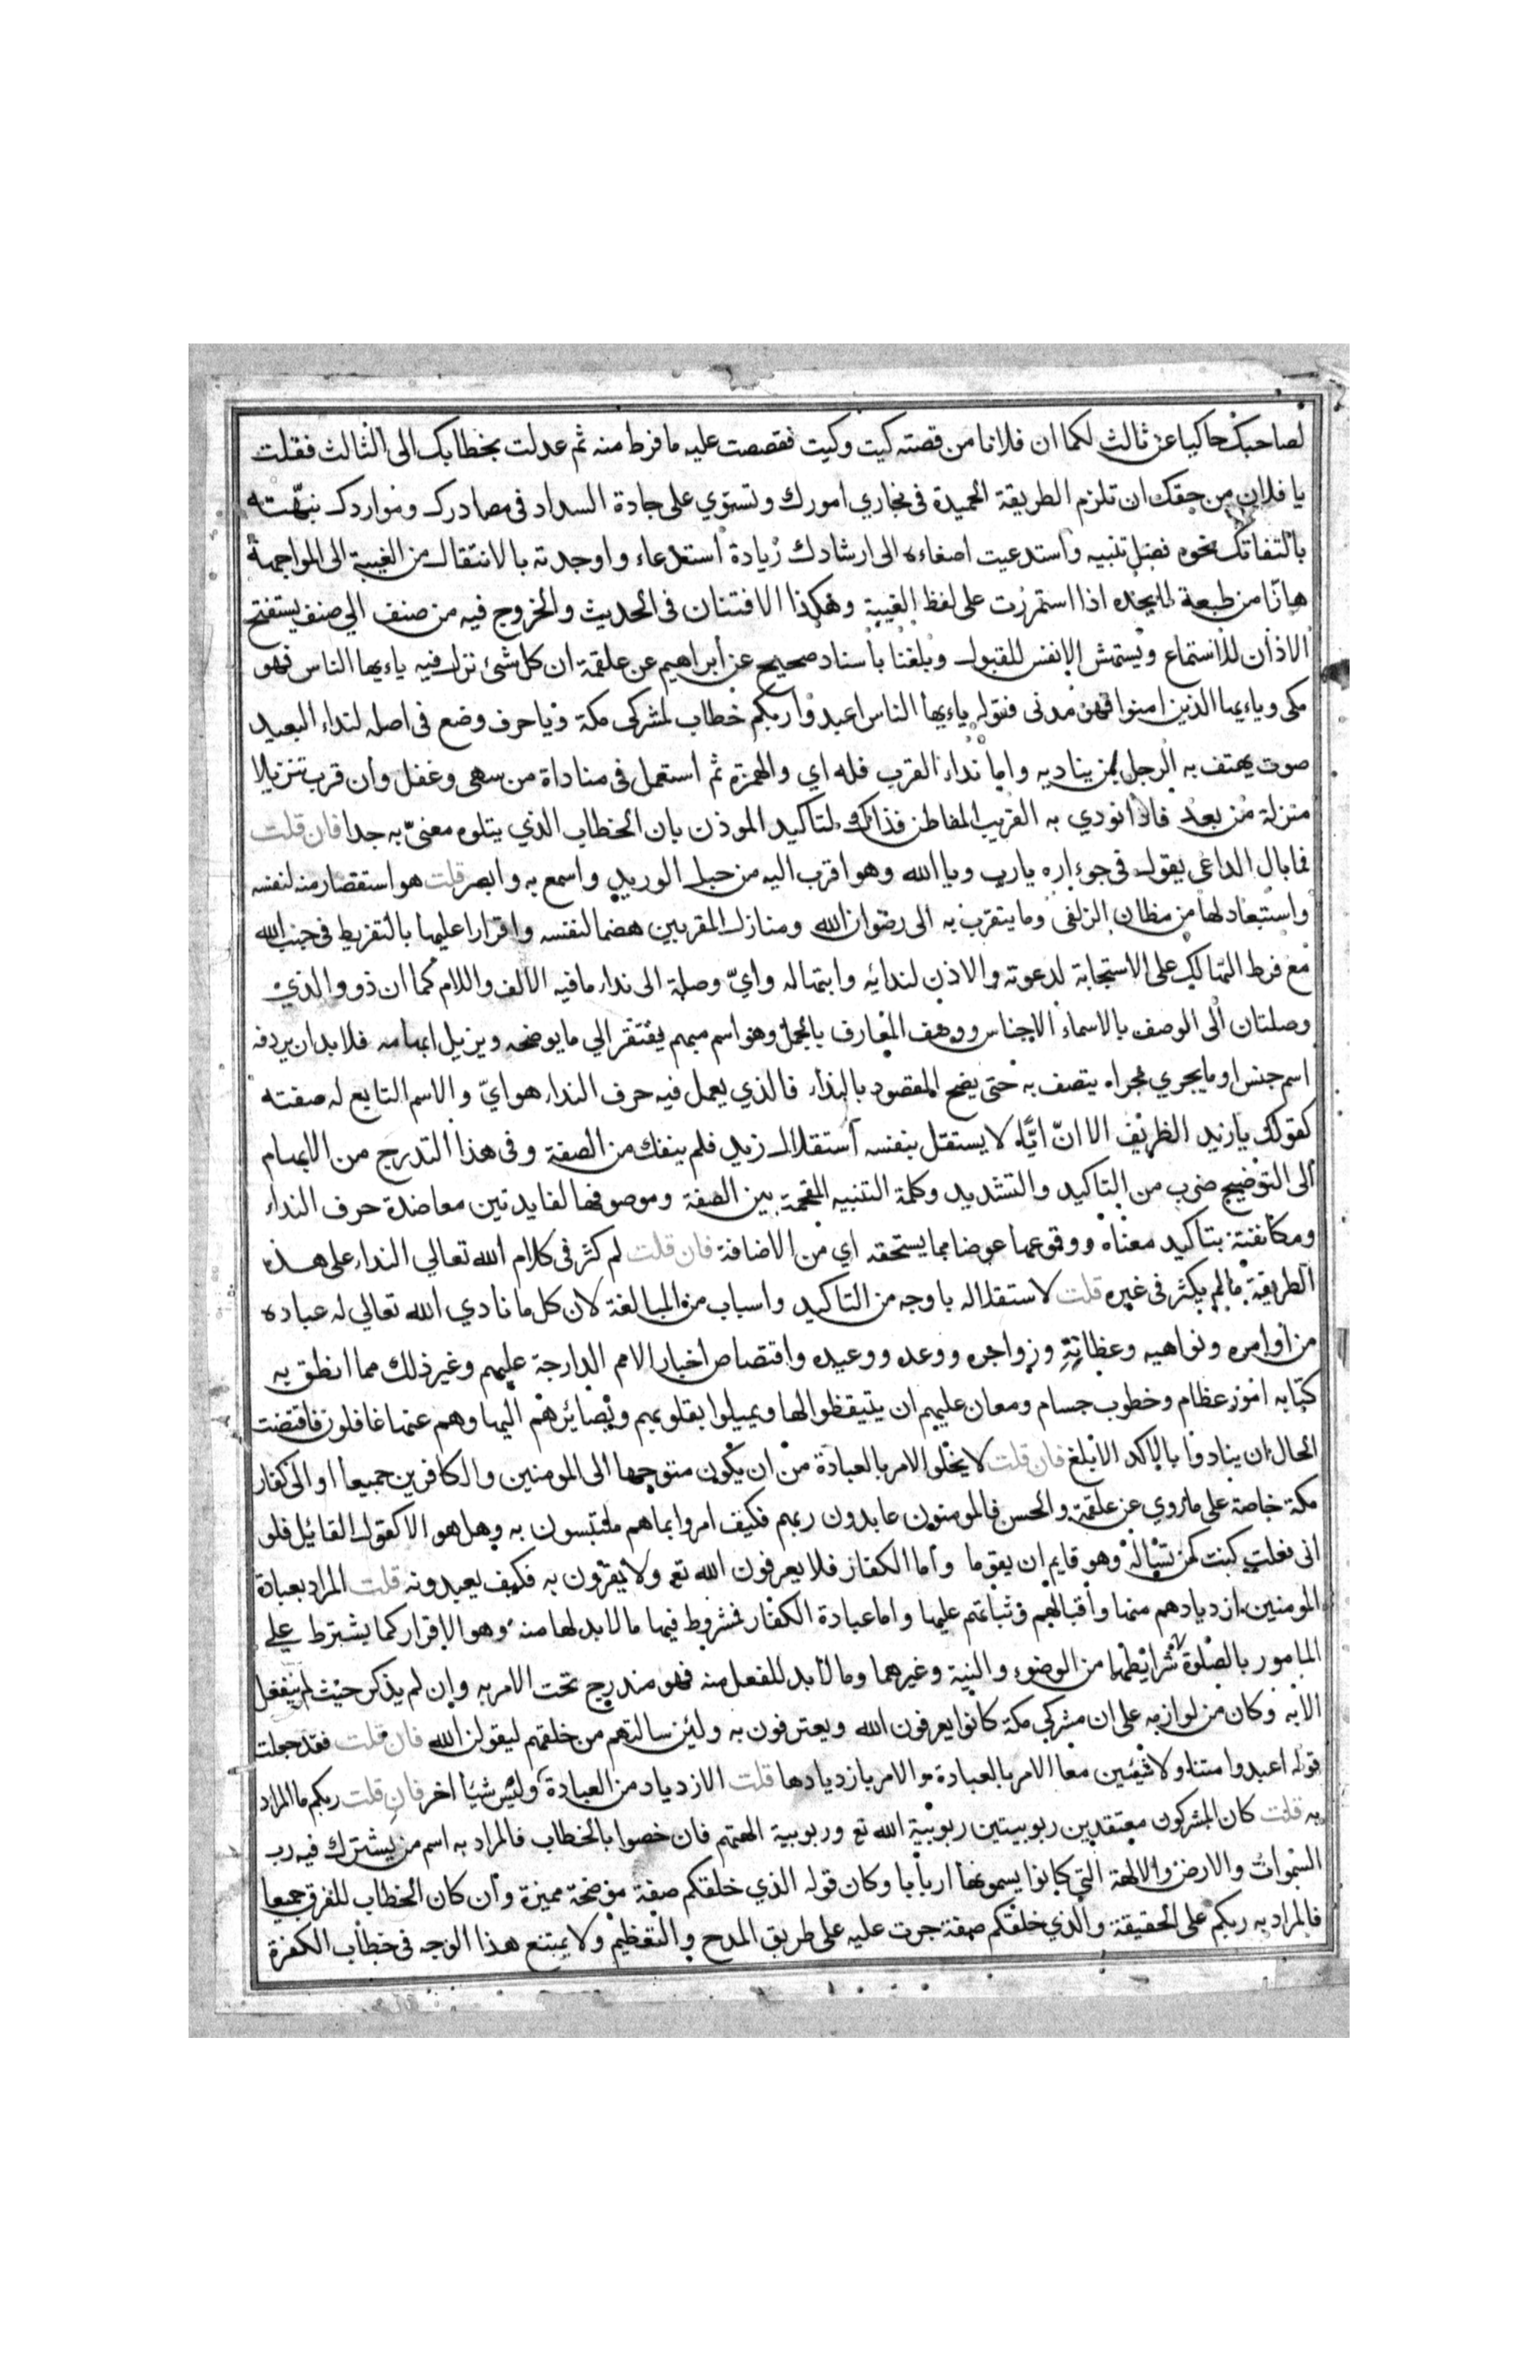 لصاحبك حاكيا عن ثالث لكما ان فلانا من قصته كيت وكيت فقصصت عليه ما فرط منه ثم عدلت بخطابك الى الثالث فقلت
يا فلان من حقك ان تلزم الطريقة الحميدة في مجاري امورك وتستوي على جادة السداد في مصادرك ومواردك نبّهته
بالتفاتك نحوه فضل تنبيه واستدعيت اصغاءه الى ارشادك زيادة استدعاء واوجدته بالانتقال من الغيبة الى المواجهة
هازّا من طبعه ما لا يجده اذا استمررت على لفظ الغيبة وهكذا الافتنان في الحديث والخروج فيه من صنف الي صنف يستفتح
الاذان للاستماع ويستهش الانفس للقبول وبلغنا باسناد صحيح عن ابراهيم عن علقمة ان كل شئ نزل فيه ياءيها الناس فهو
مكي وياءيها الذين امنوا فهو مدني فقوله ياءيها الناس اعبدوا ربكم خطاب لمشركي مكة ويا حرف وضع في اصله لنداء البعيد
صوت يهتف به الرجل بمن يناديه واما نداء القرب فله اي والهمزة ثم استعمل في مناداة من سهى وغفل وان قرب تنزيلا
منزلة من بعد فاذا نودي به القريب المفاطن فذلك لتاكيد الموذن بان الخطاب الذي يتلوه معنىّ به جدا فان قلت
فما بال الداعي يقول في جوءاره يا رب ويا الله وهو اقرب اليه من حبل الوريد واسمع به وابصر قلت هو استقصار منه لنفسه
واستبعاد لها من مظان الزلفى وما يتقرب به الى رضوان الله ومنازل المقربين هضما لنفسه واقرارا عليها بالتفريط في جنب الله
مع فرط التهالك على الاستجابة لدعوته والاذن لندائه وابتهاله وايّ وصلة الى نداء ما فيه الالف واللام كما ان ذو والذي
وصلتان الى الوصف بالاسماء الاجناس ووصف المعارف بالجمل وهو اسم مبهم يفتقر الي ما يوضحه ويزيل ابهامه فلا بد ان يردفه
اسم جنس او ما يجري مجراه يتصف به حتى يضح المقصود بالنداء فالذي يعمل فيه حرف النداء هو ايّ والاسم التابع له صفته
كقولك يا زيد الظريف الا انّ ايّا لا يستقل بنفسه استقلال زيد فلم ينفك من الصفة وفي هذا التدرج من الابهام
الى التوضيح ضرب من التاكيد والتشديد وكلمة التنبيه المقحمة بين الصفة وموصوفها لفايدتين معاضدة حرف النداء
ومكانفته بتاكيد معناه ووقوعها عوضا مما يستحقه اي من الاضافة فان قلت لم كثر في كلام الله تعالي النداء على هذه
الطريقة ما لم يكثر في غيره قلت لاستقلاله باوجه من التاكيد واسباب من المبالغة لان كل ما نادي الله تعالي له عباده
من اوامره ونواهيه وعظاته وزواجره ووعده ووعيده واقتصاص اخبار الامم الدارجة عليهم وغير ذلك مما انطق به
كتابه امور عظام وخطوب جسام ومعان عليهم ان يتيقظوا لها ويميلوا بقلوبهم وبصائرهم اليها وهم عنها غافلون فاقتضت
الحال ان ينادوا بالاكد الابلغ فان قلت لا يخلو الامر بالعبادة من ان يكون متوجها الى المومنين والكافرين جميعا او الى كفار
مكة خاصة على ما روي عن علقمة والحسن فالمومنون عابدون ربهم فكيف امروا بما هم ملتبسون به وهل هو الا كقول القائل فلو
اني فعلت كنت كمن تساله وهو قايم ان يقوما واما الكفار فلا يعرفون الله تع ولا يقرّون به فكيف يعبدونه قلت المراد بعبادة
المومنين ازديادهم منها واقبالهم وثباتهم عليها واما عبادة الكفار فمشروط فيها ما لا بد لها منه وهو الاقرار كما يشترط علي
المامور بالصلوة شرايطها من الوضوء والنية وغيرهما وما لا بد للفعل منه فهو مندرج تحت الامر به وان لم يذكر حيث لم ينفعل
الا به وكان من لوازمه على ان مشركي مكة كانوا يعرفون الله ويعترفون به ولئن سالتهم من خلقهم ليقولن الله فان قلت فقد جعلت
قوله اعبدوا متناولا شيئين معا الامر بالعبادة والامر بازديادها قلت الازدياد من العبادة وليس شيئا اخر فان قلت ربكم ما المراد
به قلت كان المشركون معتقدين ربوبيتين ربوبية الله تع وربوبية الهتهم فان خصوا بالخطاب فالمراد به اسم من يشترك فيه رب
السموات والارض والالهة التي كانوا يسمونها اربابا وكان قوله الذي خلقكم صفة موضحة مميزة وان كان الخطاب للفرق جميعا
فالمراد به ربكم على الحقيقة والذي خلقكم صفة جرت عليه على طريق المدح والتعظيم ولا يمتنع هذا الوجه في خطاب الكفرة